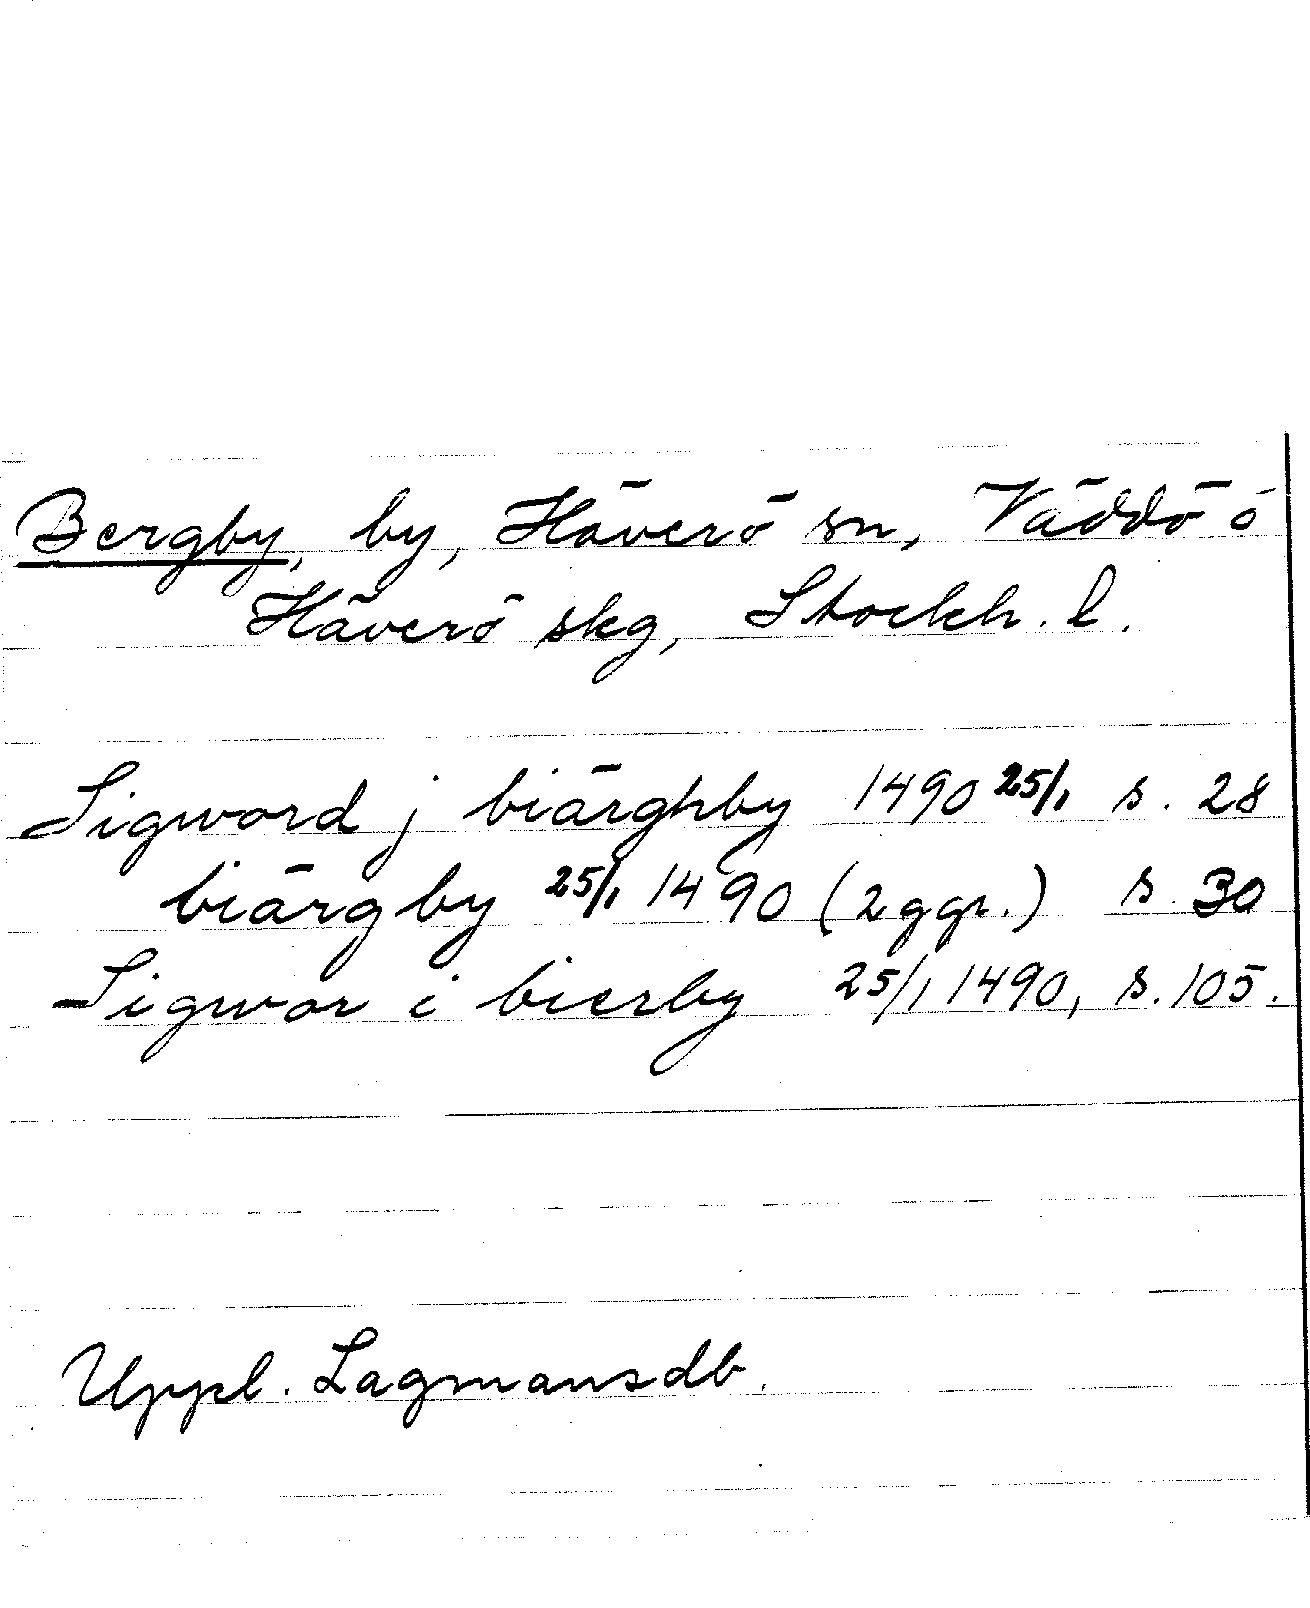 Bergby, by, Häverö sn, Väddö ó
Häverö skg, Stockh. l.
Sigword j biärghby 1490 25/1 s. 28
biärgby 25/1 1490 (2 ggr.) s. 30
Sigwor i bierby 25/1 1490, s. 105.
Uppl. Lagmansdb.